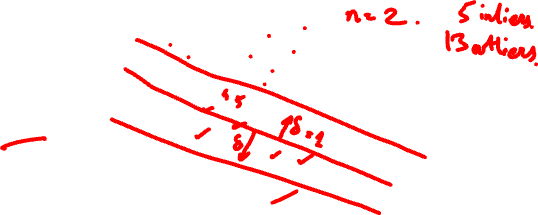 n=2. 5 inliers
13 outliers.
δ=1
δ